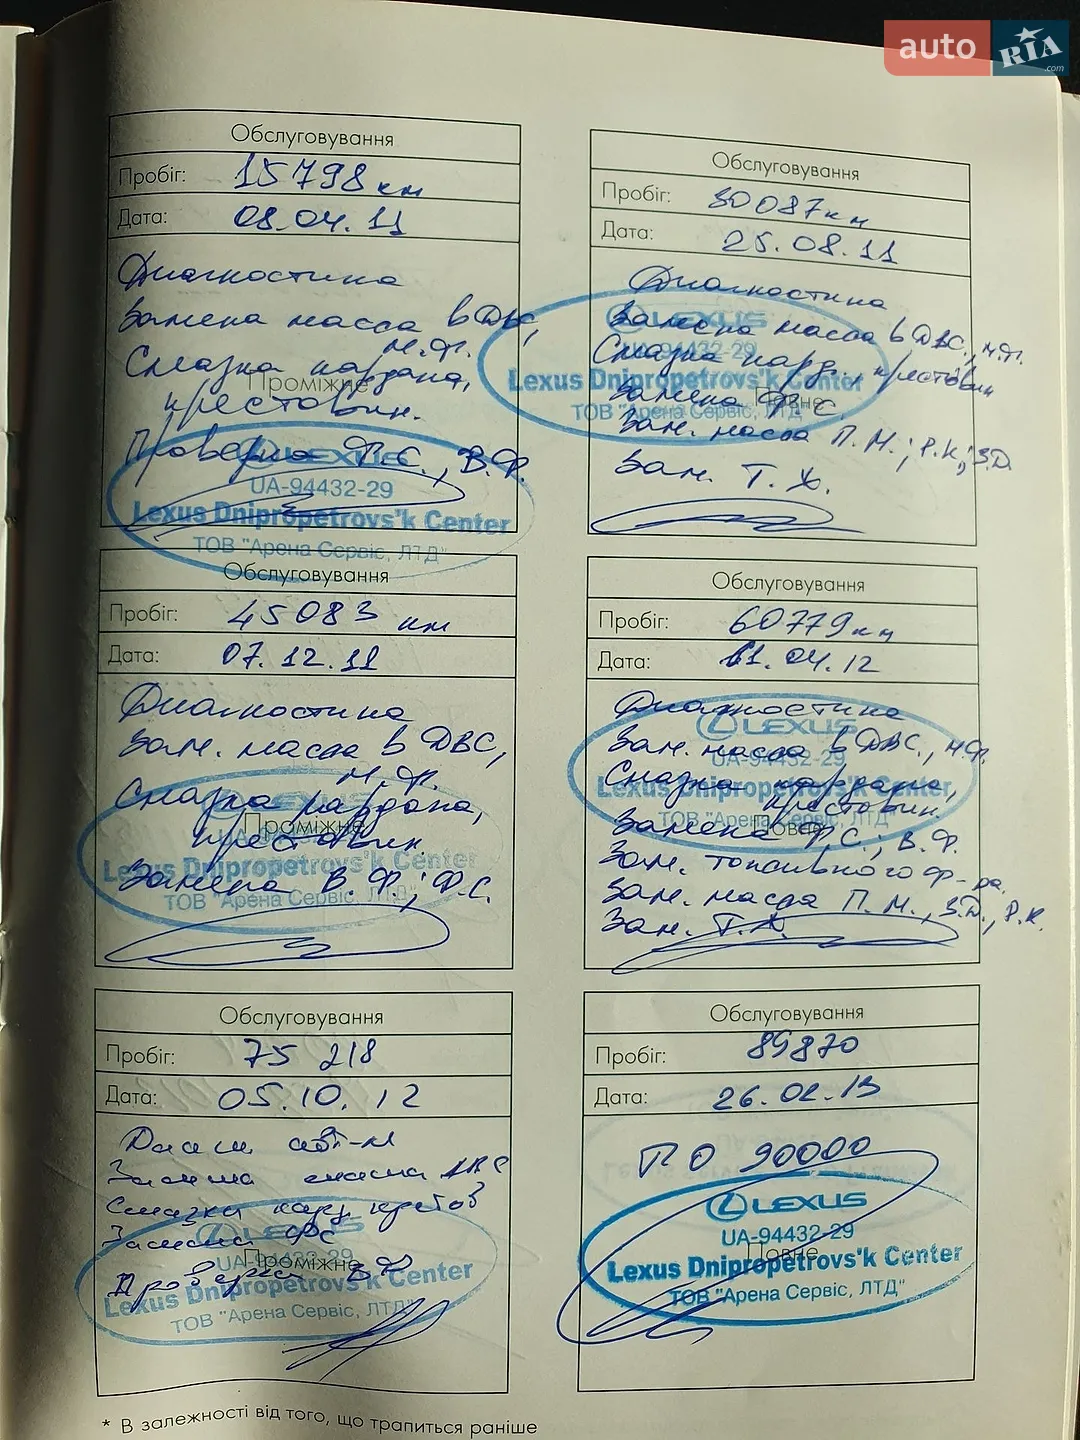 auto RIA.com
Обслуговування
Пробіг: 15798 км
Дата: 08.04.11
Диагностика
Замена масла в ДВС,
м.ф.
Смазка кардана,
Проміжне
крестовин.
Проверка Ф.С., В.Ф.
LEXUS
UA-94432-29
Lexus Dnipropetrovs'k Center
ТОВ "Арена Сервіс, ЛТД"
Обслуговування
Пробіг: 30087 км
Дата: 25.08.11
Диагностика
LEXUS
Замена масла в ДВС., м.ф.
UA-94432-29
Смазка кард., крестовин
Lexus Dnipropetrovs'k Center
Повне
Замена Ф.С.
ТОВ "Арена Сервіс, ЛТД"
Зам. масла П.М.; Р.К.; З.Д.
Зам. Т.Ж.
Обслуговування
Пробіг: 45083 км
Дата: 07.12.11
Диагностика
Зам. масла в ДВС,
м.ф.
Смазка кардана,
Проміжне
крестовин.
Lexus Dnipropetrovs'k Center
Замена В.Ф.; Ф.С.
ТОВ "Арена Сервіс, ЛТД"
Обслуговування
Пробіг: 60779 км
Дата: 11.04.12
Диагностика
LEXUS
Зам. масла в ДВС., м.ф.
UA-94432-29
Смазка кардана,
Lexus Dnipropetrovs'k Center
крестовин.
ТОВ "Арена Сервіс, ЛТД"
Повне
Замена Ф.С., В.Ф.
Зам. топливного ф-ра.
Зам. масла П.М., З.Д., Р.К.
Зам. Т.Ж.
Обслуговування
Пробіг: 75 218
Дата: 05.10.12
Диагн авт-ля
Замена масла ДВС
Смазка кард крестов
LEXUS
Замена ФС
UA-94432-29
Проміжне
Проверка ВФ
Lexus Dnipropetrovs'k Center
ТОВ "Арена Сервіс, ЛТД"
Обслуговування
Пробіг: 89870
Дата: 26.02.13
ТО 90000
LEXUS
UA-94432-29
Повне
Lexus Dnipropetrovs'k Center
ТОВ "Арена Сервіс, ЛТД"
* В залежності від того, що трапиться раніше